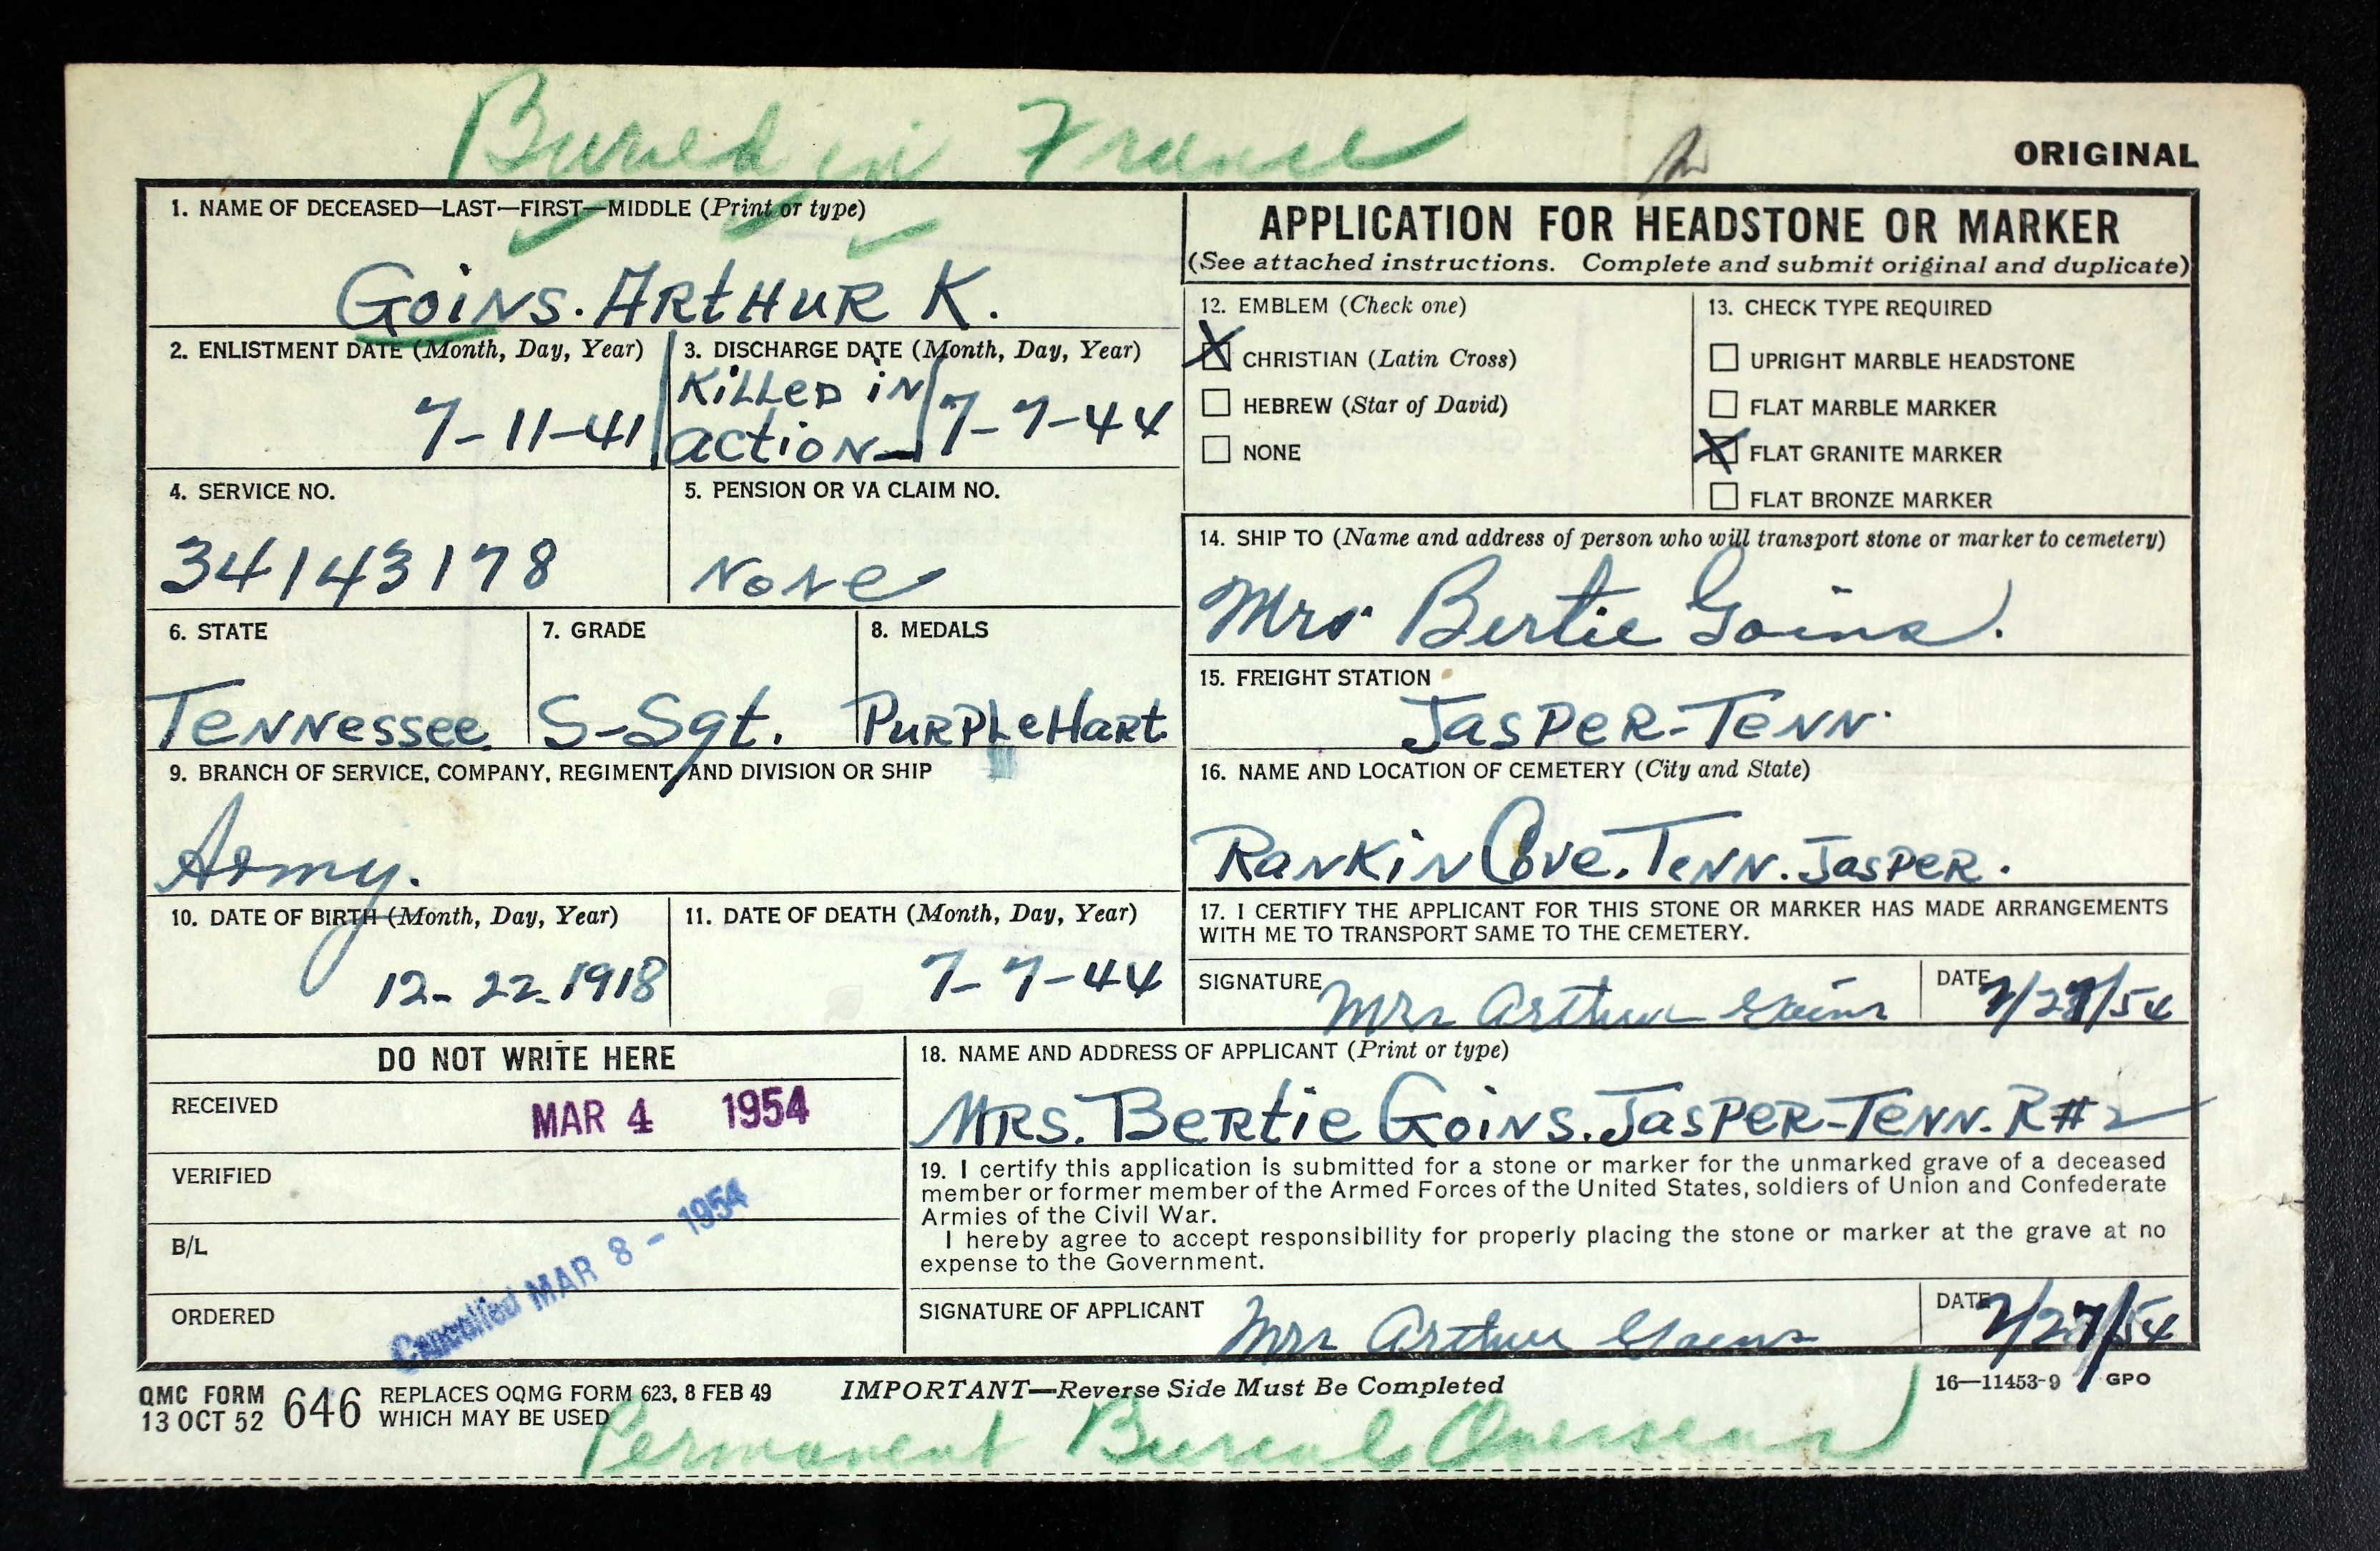 Buried in France
ORIGINAL
1. NAME OF DECEASED—LAST—FIRST—MIDDLE (Print or type)
GOiNS. ARtHUR K.
APPLICATION FOR HEADSTONE OR MARKER
(See attached instructions. Complete and submit original and duplicate)
2. ENLISTMENT DATE (Month, Day, Year)
7-11-41
3. DISCHARGE DATE (Month, Day, Year)
KiLLeD iN
actioN- 7-7-44
12. EMBLEM (Check one)
X CHRISTIAN (Latin Cross)
HEBREW (Star of David)
NONE
13. CHECK TYPE REQUIRED
UPRIGHT MARBLE HEADSTONE
FLAT MARBLE MARKER
X FLAT GRANITE MARKER
FLAT BRONZE MARKER
4. SERVICE NO.
34143178
5. PENSION OR VA CLAIM NO.
NoNe
14. SHIP TO (Name and address of person who will transport stone or marker to cemetery)
Mrs Bertie Goins.
6. STATE
TeNNessee.
7. GRADE
S-Sgt.
8. MEDALS
PURPLeHart
15. FREIGHT STATION
JasPeR-TeNN.
9. BRANCH OF SERVICE, COMPANY, REGIMENT, AND DIVISION OR SHIP
Army.
16. NAME AND LOCATION OF CEMETERY (City and State)
RaNKiN Cove. TeNN. JasPeR.
10. DATE OF BIRTH (Month, Day, Year)
12-22-1918
11. DATE OF DEATH (Month, Day, Year)
7-7-44
17. I CERTIFY THE APPLICANT FOR THIS STONE OR MARKER HAS MADE ARRANGEMENTS
WITH ME TO TRANSPORT SAME TO THE CEMETERY.
SIGNATURE Mrs Arthur Goins
DATE 2/27/54
DO NOT WRITE HERE
RECEIVED MAR 4 1954
VERIFIED
B/L
ORDERED
Cancelled MAR 8 - 1954
18. NAME AND ADDRESS OF APPLICANT (Print or type)
MRS. BeRtie GoiNS. JasPeR-TeNN. R#2
19. I certify this application is submitted for a stone or marker for the unmarked grave of a deceased
member or former member of the Armed Forces of the United States, soldiers of Union and Confederate
Armies of the Civil War.
I hereby agree to accept responsibility for properly placing the stone or marker at the grave at no
expense to the Government.
SIGNATURE OF APPLICANT Mrs Arthur Goins
DATE 2/27/54
QMC FORM
13 OCT 52 646
REPLACES OQMG FORM 623, 8 FEB 49
WHICH MAY BE USED
IMPORTANT—Reverse Side Must Be Completed
16—11453-9 GPO
Permanent Burial Overseas